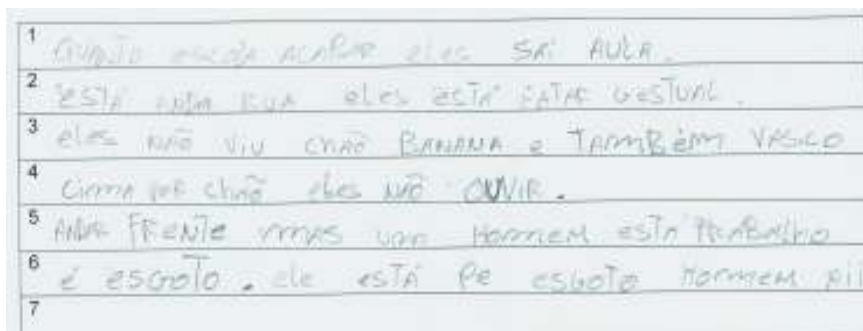 1 escola acabar eles sai AULA.
2 está anda rua eles está fatar gestual.
3 eles não viu chão BANANA e TAMBÉM VASILO
4 cima por chão eles não OUVIR.
5 ANDAR FRENTE mas um Homem está TRABALHO
6 é esgoto. ele está pe esgoto Homem
7